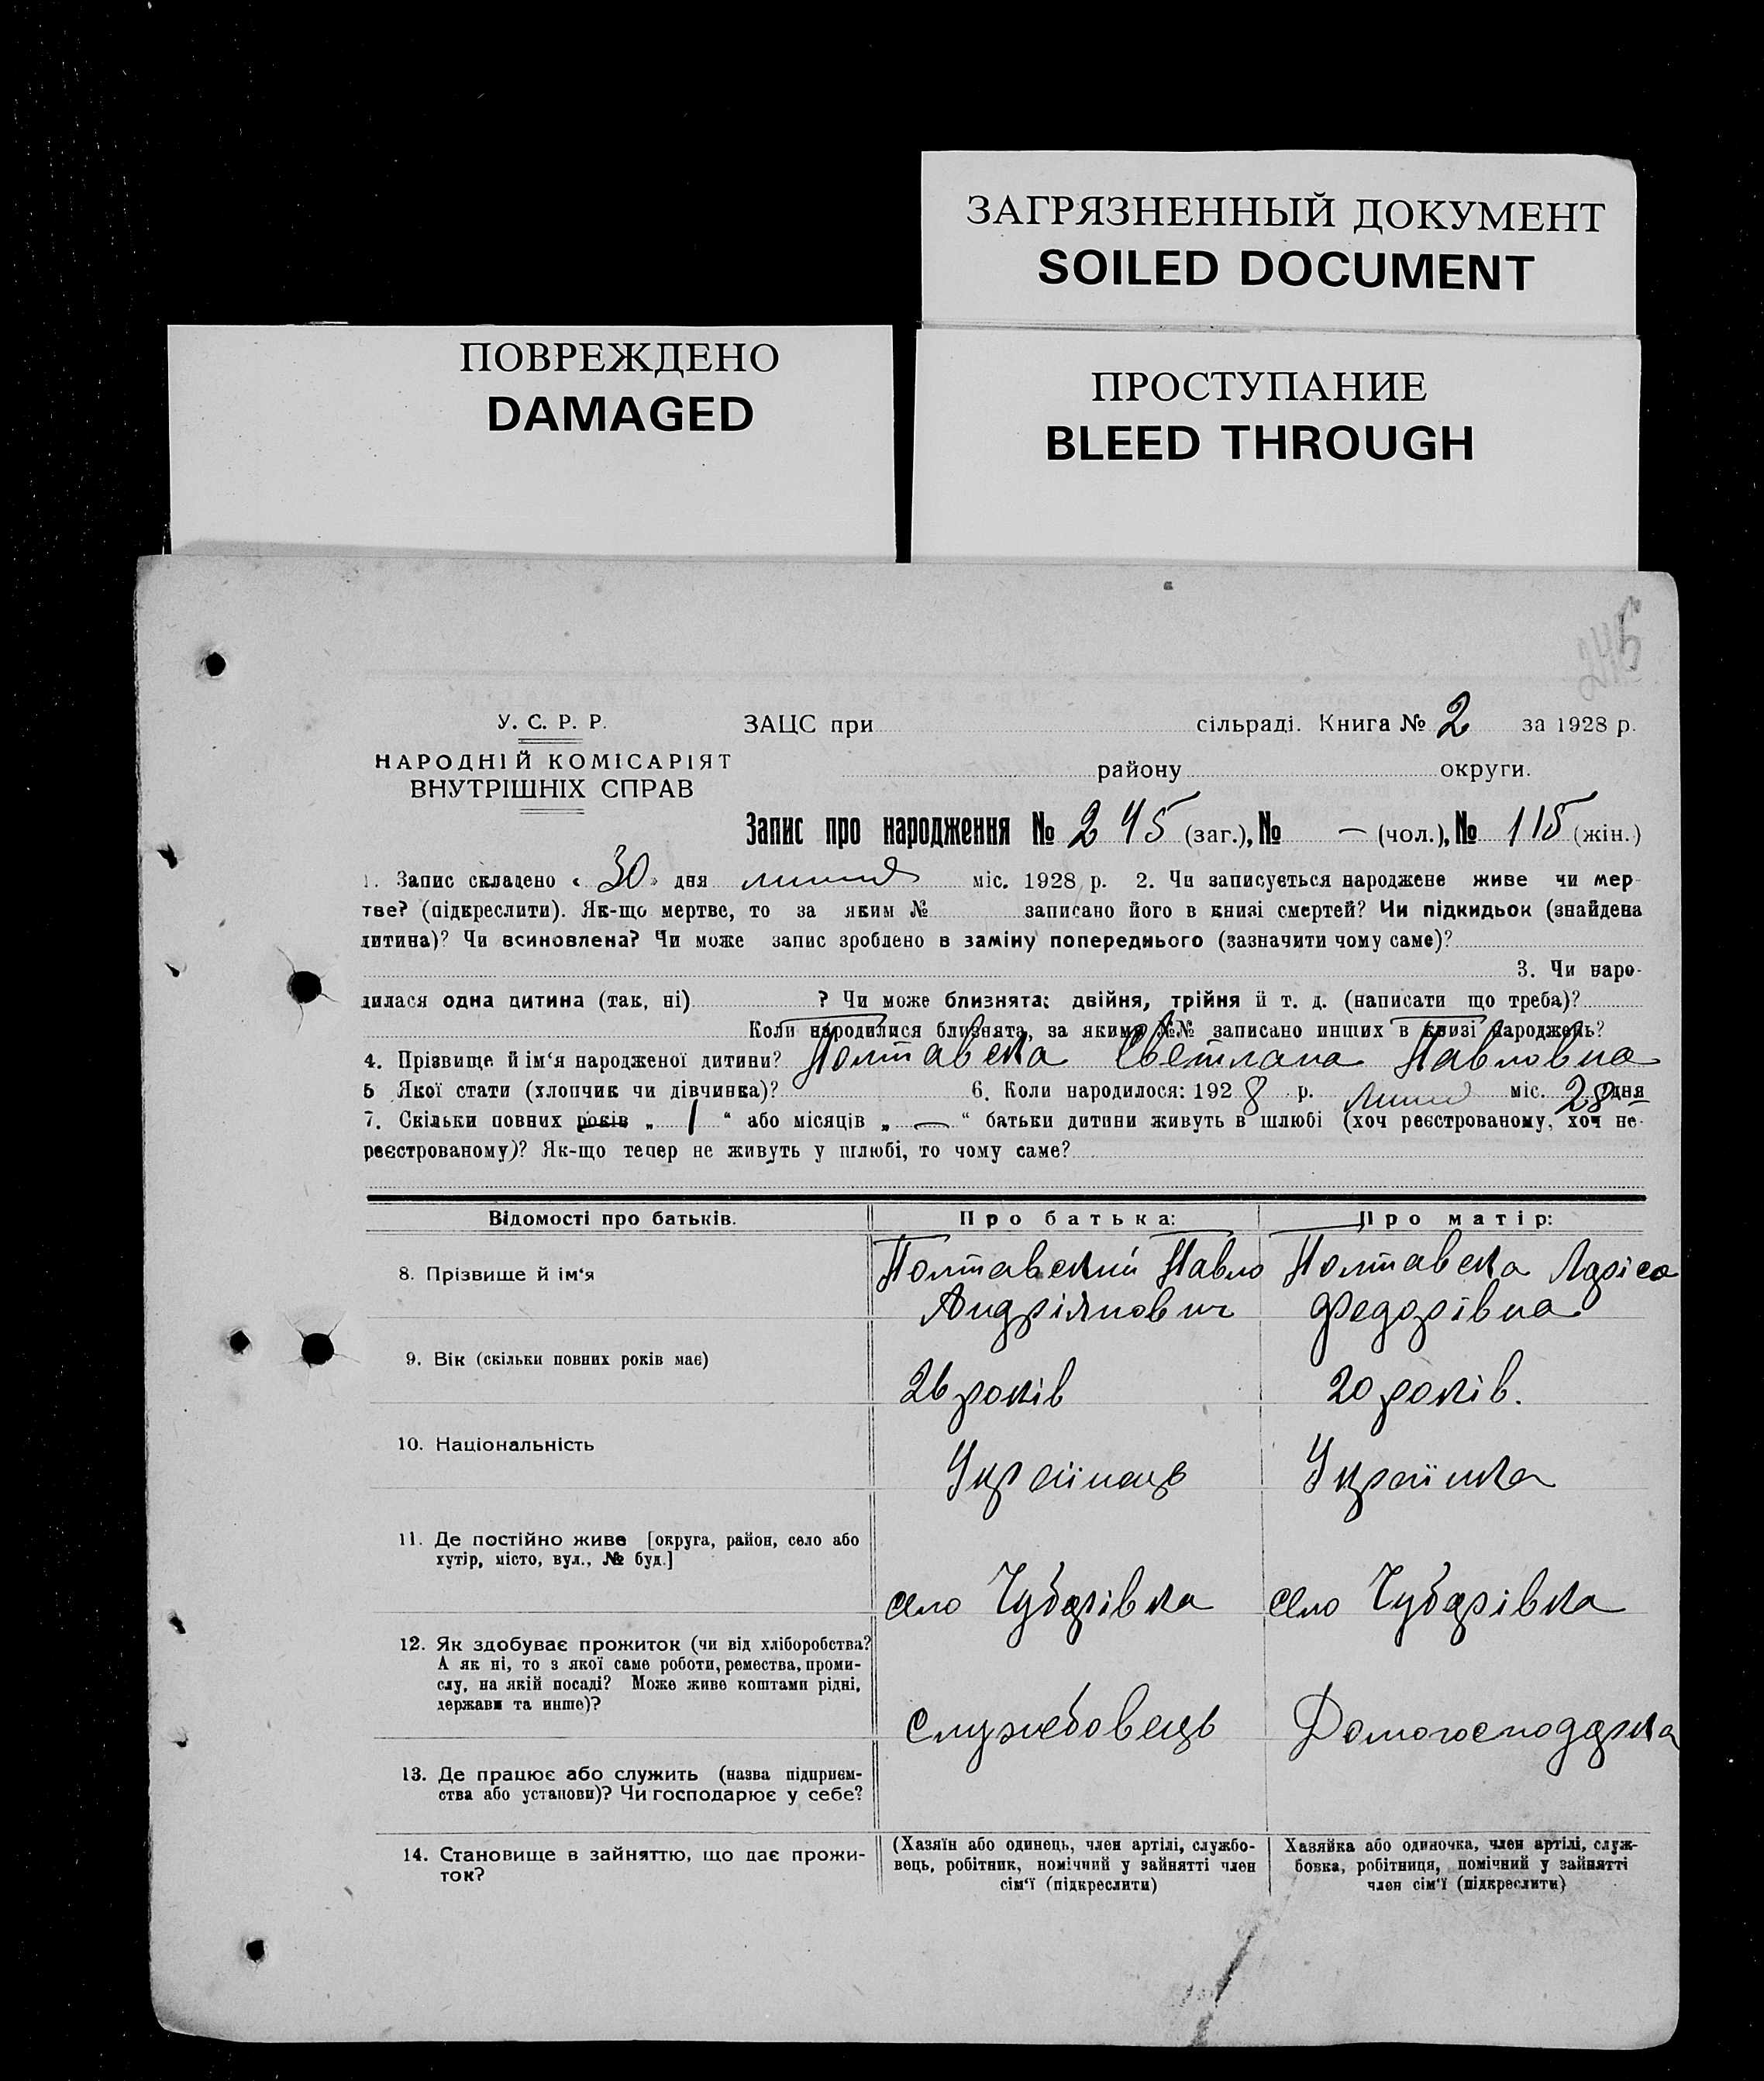 ЗАГРЯЗНЕННЫЙ ДОКУМЕНТ
SOILED DOCUMENT
ПОВРЕЖДЕНО
DAMAGED
ПРОСТУПАНИЕ
BLEED THROUGH
245
У. С. Р. Р.
НАРОДНІЙ КОМІСАРІЯТ
ВНУТРІШНІХ СПРАВ
ЗАЦС при сільраді. Книга № 2 за 1928 р.
району округи.
Запис про народження № 245 (заг.), № — (чол.), № 115 (жін.)
1. Запис складено « 30 » дня липня міс. 1928 р. 2. Чи записується народжене живе чи мер-
тве? (підкреслити). Як-що мертве, то за яким № записано його в книзі смертей? Чи підкидьок (знайдена
дитина)? Чи всиновлена? Чи може запис зроблено в заміну попереднього (зазначити чому саме)?
3. Чи наро-
дилася одна дитина (так, ні) ? Чи може близнята: двійня, трійня й т. д. (написати що треба)?
Коли народилися близнята, за якими №№ записано инших в книзі народжень?
4. Прізвище й ім‘я народженої дитини? Полтавска Светлана Павловна
5 Якої стати (хлопчик чи дівчинка)? 6. Коли народилося: 1928 р. липня міс. 28 дня
7. Скільки повних років „ 1 “ або місяців „ — “ батьки дитини живуть в шлюбі (хоч реєстрованому, хоч не-
реєстрованому)? Як-що тепер не живуть у шлюбі, то чому саме?
Відомості про батьків. Про батька: Про матір:
8. Прізвище й ім‘я Полтавский Павло Полтавска Ларіса
Андріянович Федорівна
9. Вік (скільки повних років має) 26 років 20 років.
10. Національність Українець Українка
11. Де постійно живе [округа, район, село або
хутір, місто, вул., № буд.] село Чубарівка село Чубарівка
12. Як здобуває прожиток (чи від хліборобства?
А як ні, то з якої саме роботи, ремества, проми-
слу, на якій посаді? Може живе коштами рідні,
держави та инше)? Служебовець Домогосподарка
13. Де працює або служить (назва підприєм-
ства або установи)? Чи господарює у себе?
14. Становище в зайняттю, що дає прожи-
ток?
(Хазяїн або одинець, член артілі, службо-
вець, робітник, помічний у зайнятті член
сім‘ї (підкреслити)
Хазяйка або одиночка, член артілі, служ-
бовка, робітниця, помічний у зайнятті
член сім‘ї (підкреслити)